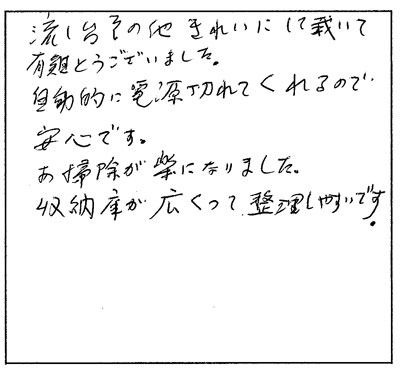 流し台その他きれいにして裁いて
有難とうございました。
自動的に電源切れてくれるので
安心です。
お掃除が楽になりました。
収納庫が広くって整理しやすいです。